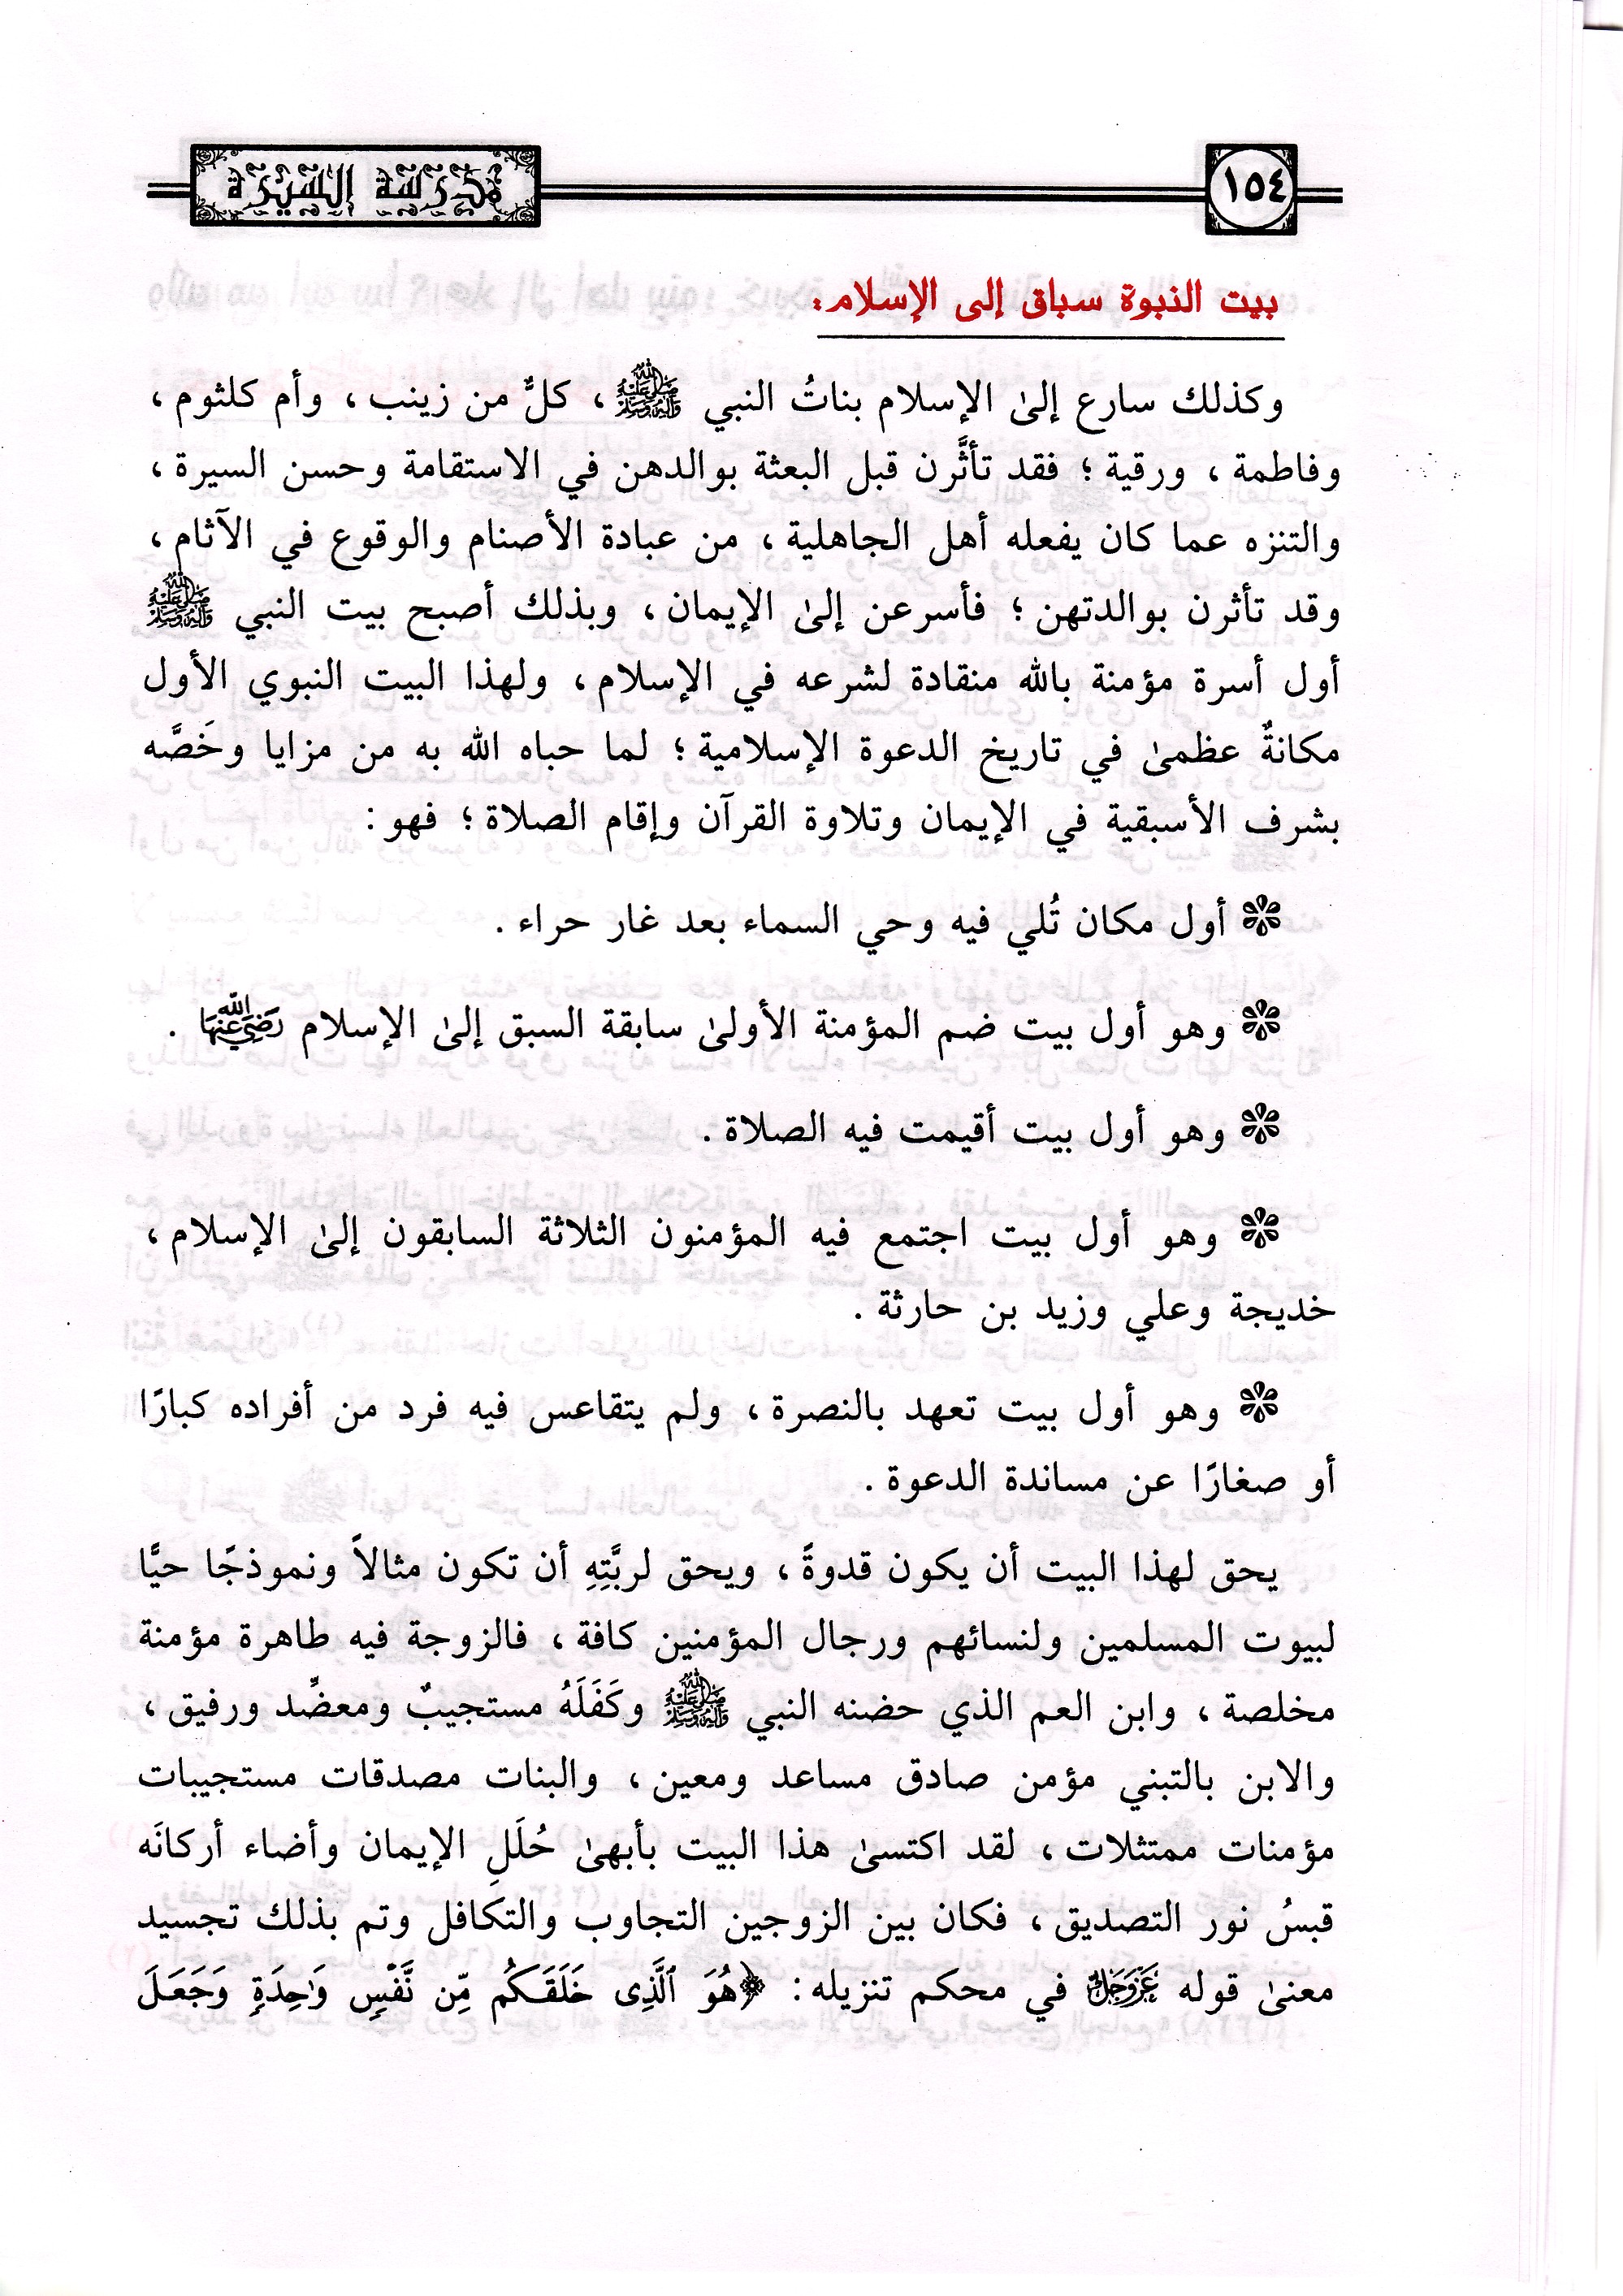 ١٥٤
مدرسة السيرة
بيت النبوة سباق إلى الإسلام:
وكذلك سارع إلىٰ الإسلام بناتُ النبي ﷺ ، كلٌّ من زينب ، وأم كلثوم ،
وفاطمة ، ورقية ؛ فقد تأثَّرن قبل البعثة بوالدهن في الاستقامة وحسن السيرة ،
والتنزه عما كان يفعله أهل الجاهلية ، من عبادة الأصنام والوقوع في الآثام ،
وقد تأثرن بوالدتهن ؛ فأسرعن إلىٰ الإيمان ، وبذلك أصبح بيت النبي ﷺ
أول أسرة مؤمنة بالله منقادة لشرعه في الإسلام ، ولهذا البيت النبوي الأول
مكانةٌ عظمىٰ في تاريخ الدعوة الإسلامية ؛ لما حباه الله به من مزايا وخَصَّه
بشرف الأسبقية في الإيمان وتلاوة القرآن وإقام الصلاة ؛ فهو :
❁ أول مكان تُلي فيه وحي السماء بعد غار حراء .
❁ وهو أول بيت ضم المؤمنة الأولىٰ سابقة السبق إلىٰ الإسلام رَضِيَ اللَّهُ عَنْهَا .
❁ وهو أول بيت أقيمت فيه الصلاة .
❁ وهو أول بيت اجتمع فيه المؤمنون الثلاثة السابقون إلىٰ الإسلام ،
خديجة وعلي وزيد بن حارثة .
❁ وهو أول بيت تعهد بالنصرة ، ولم يتقاعس فيه فرد من أفراده كبارًا
أو صغارًا عن مساندة الدعوة .
يحق لهذا البيت أن يكون قدوةً ، ويحق لربَّتِهِ أن تكون مثالاً ونموذجًا حيًّا
لبيوت المسلمين ولنسائهم ورجال المؤمنين كافة ، فالزوجة فيه طاهرة مؤمنة
مخلصة ، وابن العم الذي حضنه النبي ﷺ وكَفَلَهُ مستجيبٌ ومعضِّد ورفيق ،
والابن بالتبني مؤمن صادق مساعد ومعين ، والبنات مصدقات مستجيبات
مؤمنات ممتثلات ، لقد اكتسىٰ هذا البيت بأبهىٰ حُلَلِ الإيمان وأضاء أركانَه
قبسُ نور التصديق ، فكان بين الزوجين التجاوب والتكافل وتم بذلك تجسيد
معنىٰ قوله عَزَّوَجَلَّ في محكم تنزيله : ﴿هُوَ ٱلَّذِى خَلَقَكُم مِّن نَّفْسٍ وَٰحِدَةٍ وَجَعَلَ